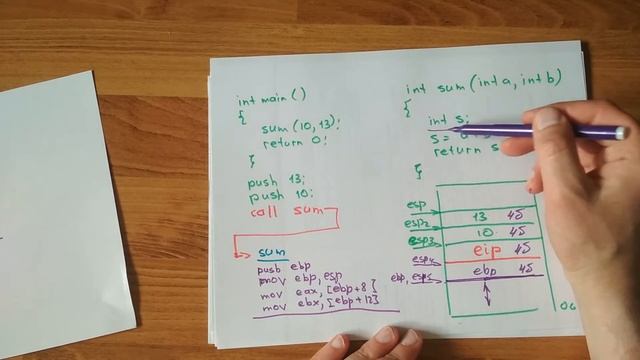 int main()
{
sum(10,13);
return 0;
}
push 13;
push 10;
call sum
sum
push ebp
mov ebp, esp
mov eax, [ebp+8]
mov ebx, [ebp+12]
int sum(int a, int b)
{
int s;
s =
return s
}
esp
13 4б
esp2
10 4б
esp3
eip 4б
esp4
ebp 4б
ebp, esp5